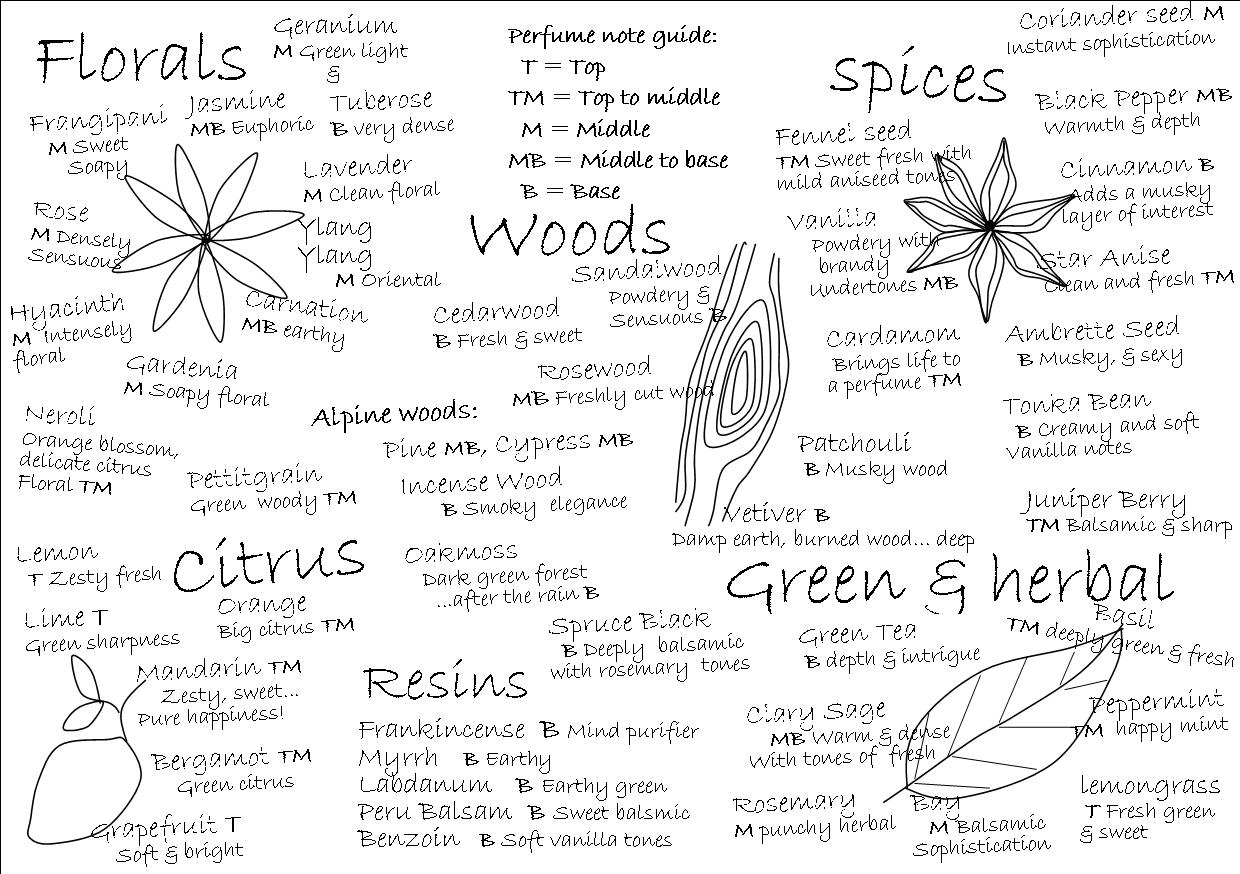 Florals
Geranium
M Green light
&
Frangipani
M Sweet
Soapy
Jasmine
MB Euphoric
Tuberose
B very dense
Lavender
M Clean floral
Rose
M Densely
Sensuous
Ylang
Ylang
M Oriental
Hyacinth
M Intensely
floral
Carnation
MB earthy
Gardenia
M Soapy floral
Neroli
Orange blossom,
delicate citrus
Floral TM
Pettitgrain
Green woody TM
Perfume note guide:
T = Top
TM = Top to middle
M = Middle
MB = Middle to base
B = Base
Woods
Sandalwood
Powdery &
Sensuous B
Cedarwood
B Fresh & sweet
Rosewood
MB Freshly cut wood
Alpine woods:
Pine MB, Cypress MB
Incense Wood
B Smoky elegance
Oakmoss
Dark green forest
...after the rain B
Spruce Black
B Deeply balsamic
with rosemary tones
Patchouli
B Musky wood
Vetiver B
Damp earth, burned wood... deep
Spices
Coriander seed M
Instant sophistication
Black Pepper MB
Warmth & depth
Fennel seed
TM Sweet fresh with
mild aniseed tones
Cinnamon B
Adds a musky
layer of interest
Vanilla
Powdery with
brandy
undertones MB
Star Anise
Clean and fresh TM
Cardamom
Brings life to
a perfume TM
Ambrette Seed
B Musky, & sexy
Tonka Bean
B Creamy and soft
Vanilla notes
Juniper Berry
TM Balsamic & sharp
Citrus
Lemon
T Zesty fresh
Lime T
Green sharpness
Orange
Big citrus TM
Mandarin TM
Zesty, sweet...
Pure happiness!
Bergamot TM
Green citrus
Grapefruit T
Soft & bright
Resins
Frankincense B Mind purifier
Myrrh B Earthy
Labdanum B Earthy green
Peru Balsam B Sweet balsmic
Benzoin B Soft vanilla tones
Green & herbal
Basil
TM deeply green & fresh
Green Tea
B depth & intrigue
Peppermint
TM happy mint
Clary Sage
MB Warm & dense
With tones of fresh
Rosemary
M punchy herbal
Bay
M Balsamic
Sophistication
lemongrass
T Fresh green
& sweet